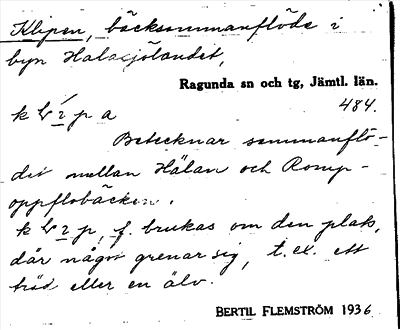 Klipen, bäcksammanflöde i
byn Halasjölandet,
Ragunda sn och tg, Jämtl. län.
484.
Betecknar sammanflö-
det mellan Hålan och Romp-
oppflobäcken.
f. brukas om den plats,
där något grenar sig, t.ex. ett
träd eller en älv.
BERTIL FLEMSTRÖM 1936